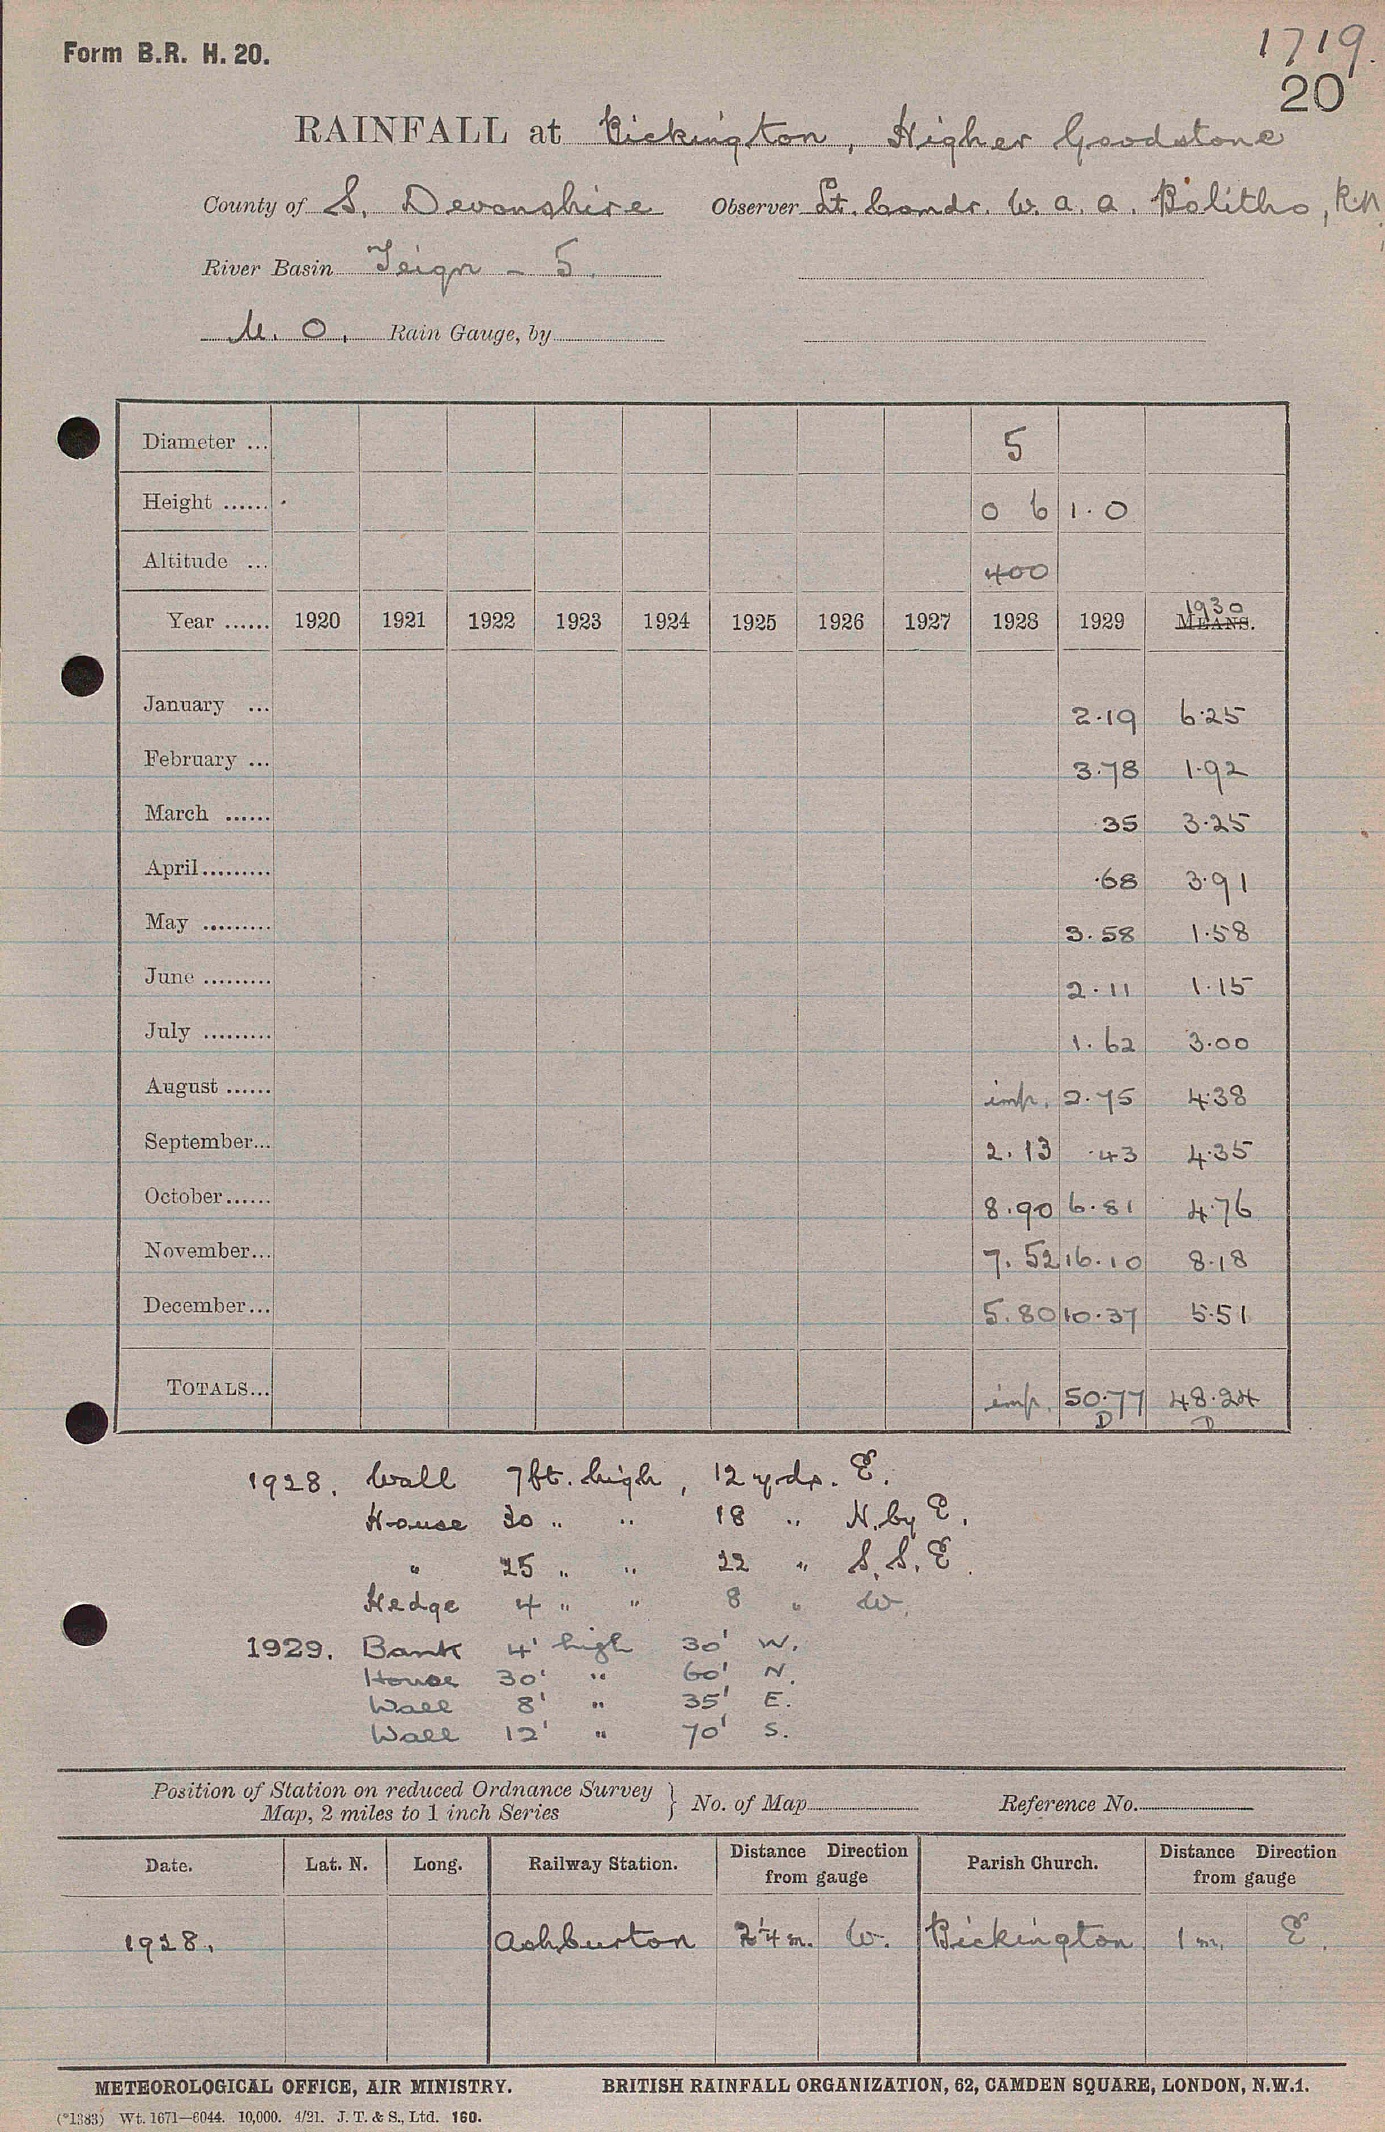 Form B.R. H. 20.
1719.
20
RAINFALL at Bickington, Higher Goodstone
County of S. Devonshire Observer Lt. Comdr. W. A. A. Bolitho, R.N.
River Basin Teign - 5.
M. O. Rain Gauge, by
Diameter ... 5
Height ...... 0 6 1·0
Altitude ... 400
Year ...... 1920 1921 1922 1923 1924 1925 1926 1927 1928 1929 1930 MEANS.
January ... 2·19 6·25
February ... 3·78 1·92
March ...... ·35 3·25
April ......... ·68 3·91
May ......... 3·58 1·58
June ......... 2·11 1·15
July ......... 1·62 3·00
August ...... imp. 2·75 4·38
September... 2.13 ·43 4·35
October ...... 8.90 6·81 4·76
November... 7.52 16·10 8·18
December... 5.80 10·37 5·51
TOTALS... imp. 50·77 48·24
D D
1928. Wall 7ft. high, 12 yds. E.
House 30 " " 18 " N. by E.
" 25 " " 22 " S. S. E.
Hedge 4 " " 8 " W.
1929. Bank 4' high 30' W.
House 30' " 60' N.
Wall 8' " 35' E.
Wall 12' " 70' S.
Position of Station on reduced Ordnance Survey
Map, 2 miles to 1 inch Series } No. of Map Reference No.
Date. Lat. N. Long. Railway Station. Distance Direction from gauge Parish Church. Distance Direction from gauge
1928. Ashburton 2¼ m. W. Bickington 1 m. E.
METEOROLOGICAL OFFICE, AIR MINISTRY. BRITISH RAINFALL ORGANIZATION, 62, CAMDEN SQUARE, LONDON, N.W.1.
(*1383) Wt. 1671—6044. 10,000. 4/21. J. T. & S., Ltd. 160.